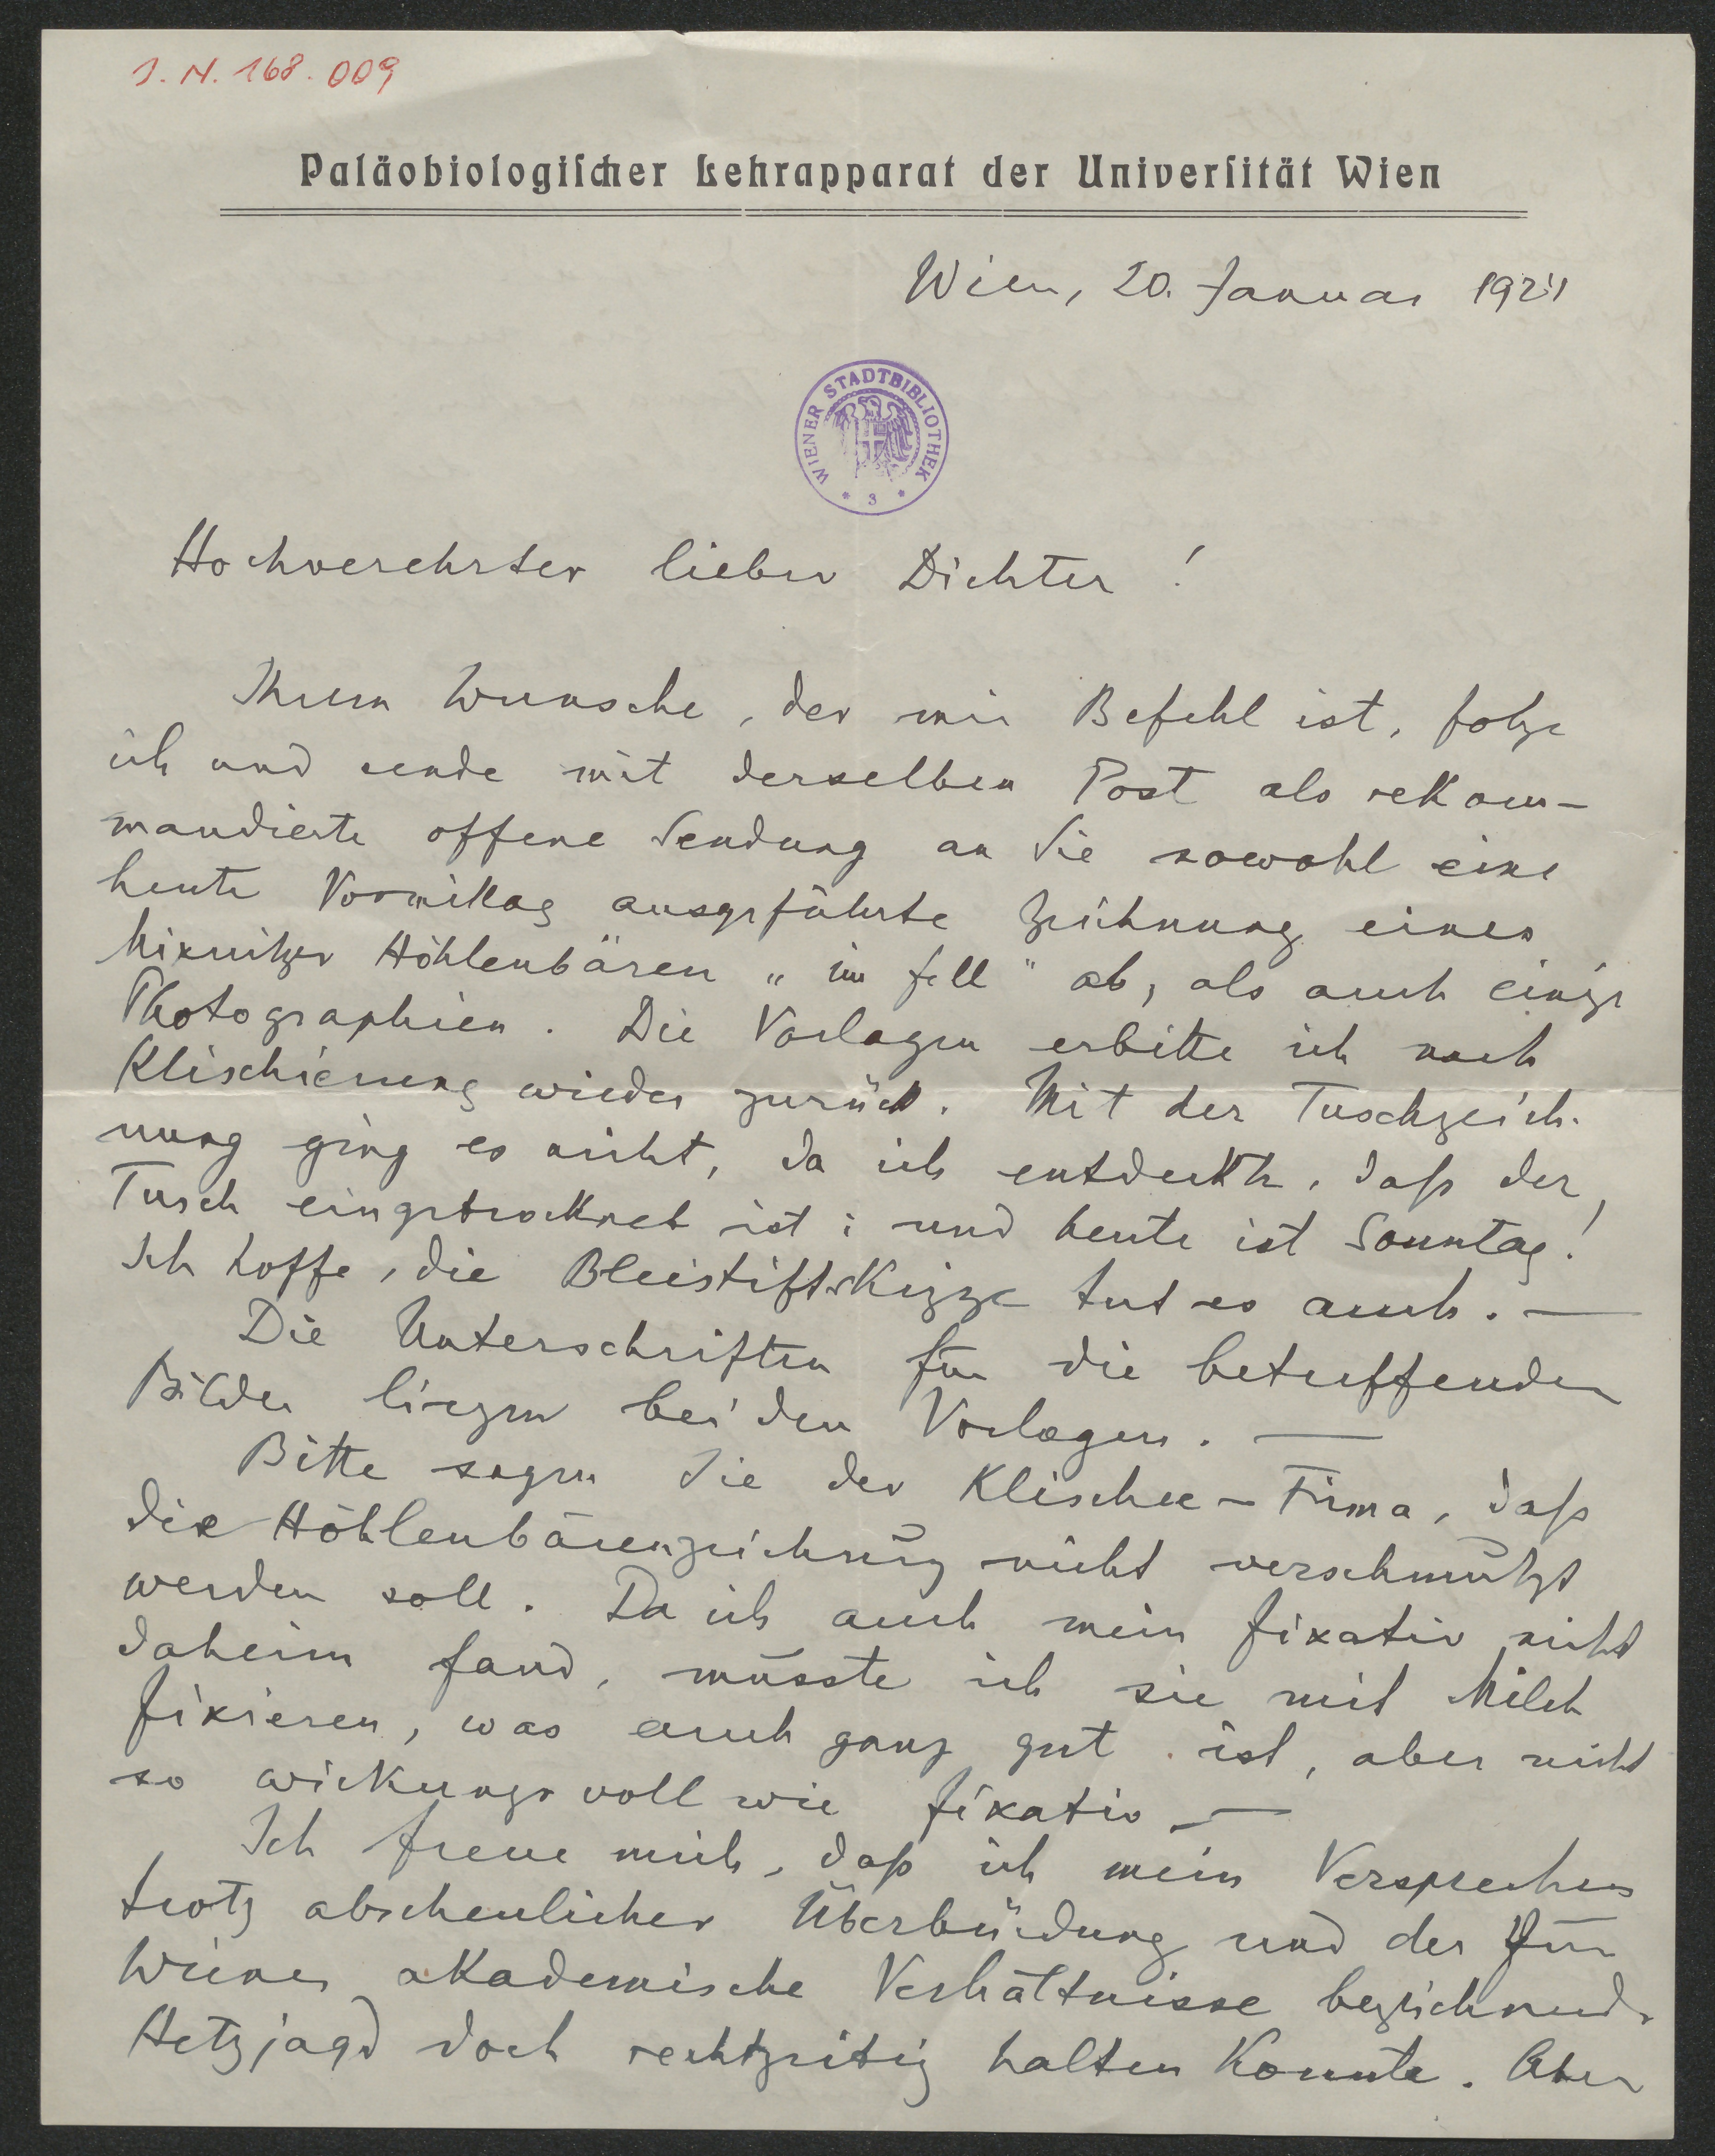 I. N. 168.009
Paläobiologischer Lehrapparat der Universität Wien
Wien, 20. Januar 1924
WIENER STADTBIBLIOTHEK
* 3 *
Hochverehrter lieber Dichter!
Ihrem Wunsche, der mir Befehl ist, folge
ich und sende mit derselben Post als rekom-
mandierte offene Sendung an Sie sowohl eine
heute Vormittag ausgeführte Zeichnung eines
Mixnitzer Höhlenbären „im Fell" ab, als auch einige
Photographien. Die Vorlagen erbitte ich nach
Klischierung wieder zurück. Mit der Tuschzeich-
nung ging es nicht, da ich entdeckte, daß der
Tusch eingetrocknet ist; und heute ist Sonntag!
Ich hoffe, die Bleistiftskizze tut es auch. —
Die Unterschriften für die betreffenden
Bilder liegen bei den Vorlagen. —
Bitte sagen Sie der Klischee-Firma, daß
die Höhlenbärenzeichnung nicht verschmützt
werden soll. Da ich auch mein Fixativ nicht
daheim fand, müsste ich sie mit Milch
fixieren, was auch ganz gut ist, aber nicht
so wirkungsvoll wie Fixativ. —
Ich freue mich, daß ich mein Versprechen
trotz abscheulicher Überbürdung und der für
Wiener akademische Verhältnisse bezeichnende
Hetzjagd doch rechtzeitig halten konnte. Aber